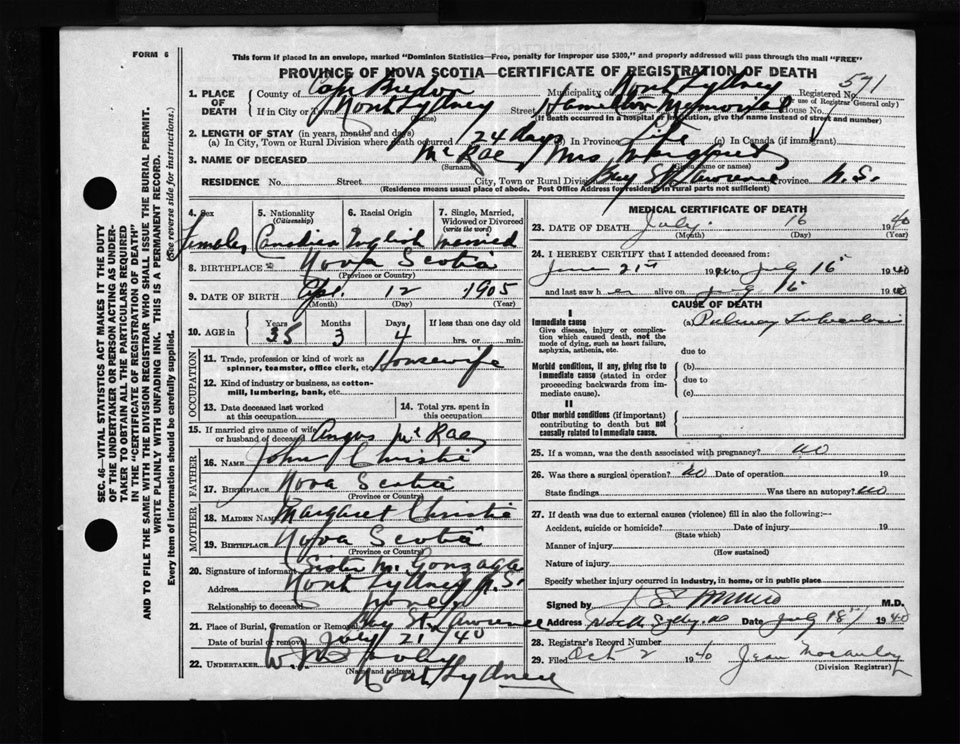 FORM 6
This form if placed in an envelope, marked "Dominion Statistics—Free, penalty for improper use $300," and properly addressed will pass through the mail "FREE"
PROVINCE OF NOVA SCOTIA—CERTIFICATE OF REGISTRATION OF DEATH
571
1. PLACE OF DEATH
County of Cape Breton Municipality of North Sydney Registered No.
(use of Registrar General only)
If in City or Town North Sydney Street Hamilton Memorial House No.
(Name) (If death occurred in a hospital or institution, give the name instead of street and number)
2. LENGTH OF STAY (in years, months and days)
(a) In City, Town or Rural Division where death occurred 24 days (b) In Province Life (c) In Canada (if immigrant)
3. NAME OF DECEASED McRae Mrs Margaret
(Surname) (Given name or names)
RESIDENCE No. Street City, Town or Rural Division Bay St Lawrence Province N.S.
(Residence means usual place of abode. Post Office Address for residents in rural parts not sufficient)
4. Sex Female
5. Nationality (Citizenship) Canadian
6. Racial Origin English
7. Single, Married, Widowed or Divorced (write the word) Married
8. BIRTHPLACE Nova Scotia
(Province or Country)
9. DATE OF BIRTH Apr. 12 1905
(Month) (Day) (Year)
10. AGE in Years 35 Months 3 Days 4 If less than one day old hrs. or min.
OCCUPATION
11. Trade, profession or kind of work as spinner, teamster, office clerk, etc. Housewife
12. Kind of industry or business, as cotton-mill, lumbering, bank, etc.
13. Date deceased last worked at this occupation
14. Total yrs. spent in this occupation
15. If married give name of wife or husband of deceased Angus McRae
FATHER
16. NAME John Christie
17. BIRTHPLACE Nova Scotia
(Province or Country)
MOTHER
18. MAIDEN NAME Margaret Christie
19. BIRTHPLACE Nova Scotia
(Province or Country)
20. Signature of informant Sister M. Gonzaga
Address North Sydney N.S.
Relationship to deceased none
21. Place of Burial, Cremation or Removal Bay St. Lawrence
Date of burial or removal July 21st 40
22. UNDERTAKER
(Name and address)
North Sydney
MEDICAL CERTIFICATE OF DEATH
23. DATE OF DEATH July 16 1940
(Month) (Day) (Year)
24. I HEREBY CERTIFY that I attended deceased from:
June 21st 1940 to July 16 1940
and last saw her alive on July 16 1940
CAUSE OF DEATH
I
Immediate cause
Give disease, injury or complication which caused death, not the mode of dying, such as heart failure, asphyxia, asthenia, etc.
(a) Pulmonary Tuberculosis
due to
Morbid conditions, if any, giving rise to immediate cause (stated in order proceeding backwards from immediate cause).
(b)
due to
(c)
II
Other morbid conditions (if important) contributing to death but not causally related to immediate cause.
25. If a woman, was the death associated with pregnancy? no
26. Was there a surgical operation? no Date of operation 19
State findings Was there an autopsy? no
27. If death was due to external causes (violence) fill in also the following:—
Accident, suicide or homicide? Date of injury 19
(State which)
Manner of injury
(How sustained)
Nature of injury
Specify whether injury occurred in industry, in home, or in public place
Signed by J S Munro M.D.
Address North Sydney NS Date July 18th 1940
28. Registrar's Record Number
29. Filed Oct 2 1940 Jean Macaulay
(Division Registrar)
SEC. 46—VITAL STATISTICS ACT MAKES IT THE DUTY
OF THE UNDERTAKER OR PERSON ACTING AS UNDER-
TAKER TO OBTAIN ALL THE PARTICULARS REQUIRED
IN THE "CERTIFICATE OF REGISTRATION OF DEATH"
AND TO FILE THE SAME WITH THE DIVISION REGISTRAR WHO SHALL ISSUE THE BURIAL PERMIT.
WRITE PLAINLY WITH UNFADING INK. THIS IS A PERMANENT RECORD.
Every item of information should be carefully supplied. (See reverse side for instructions.)